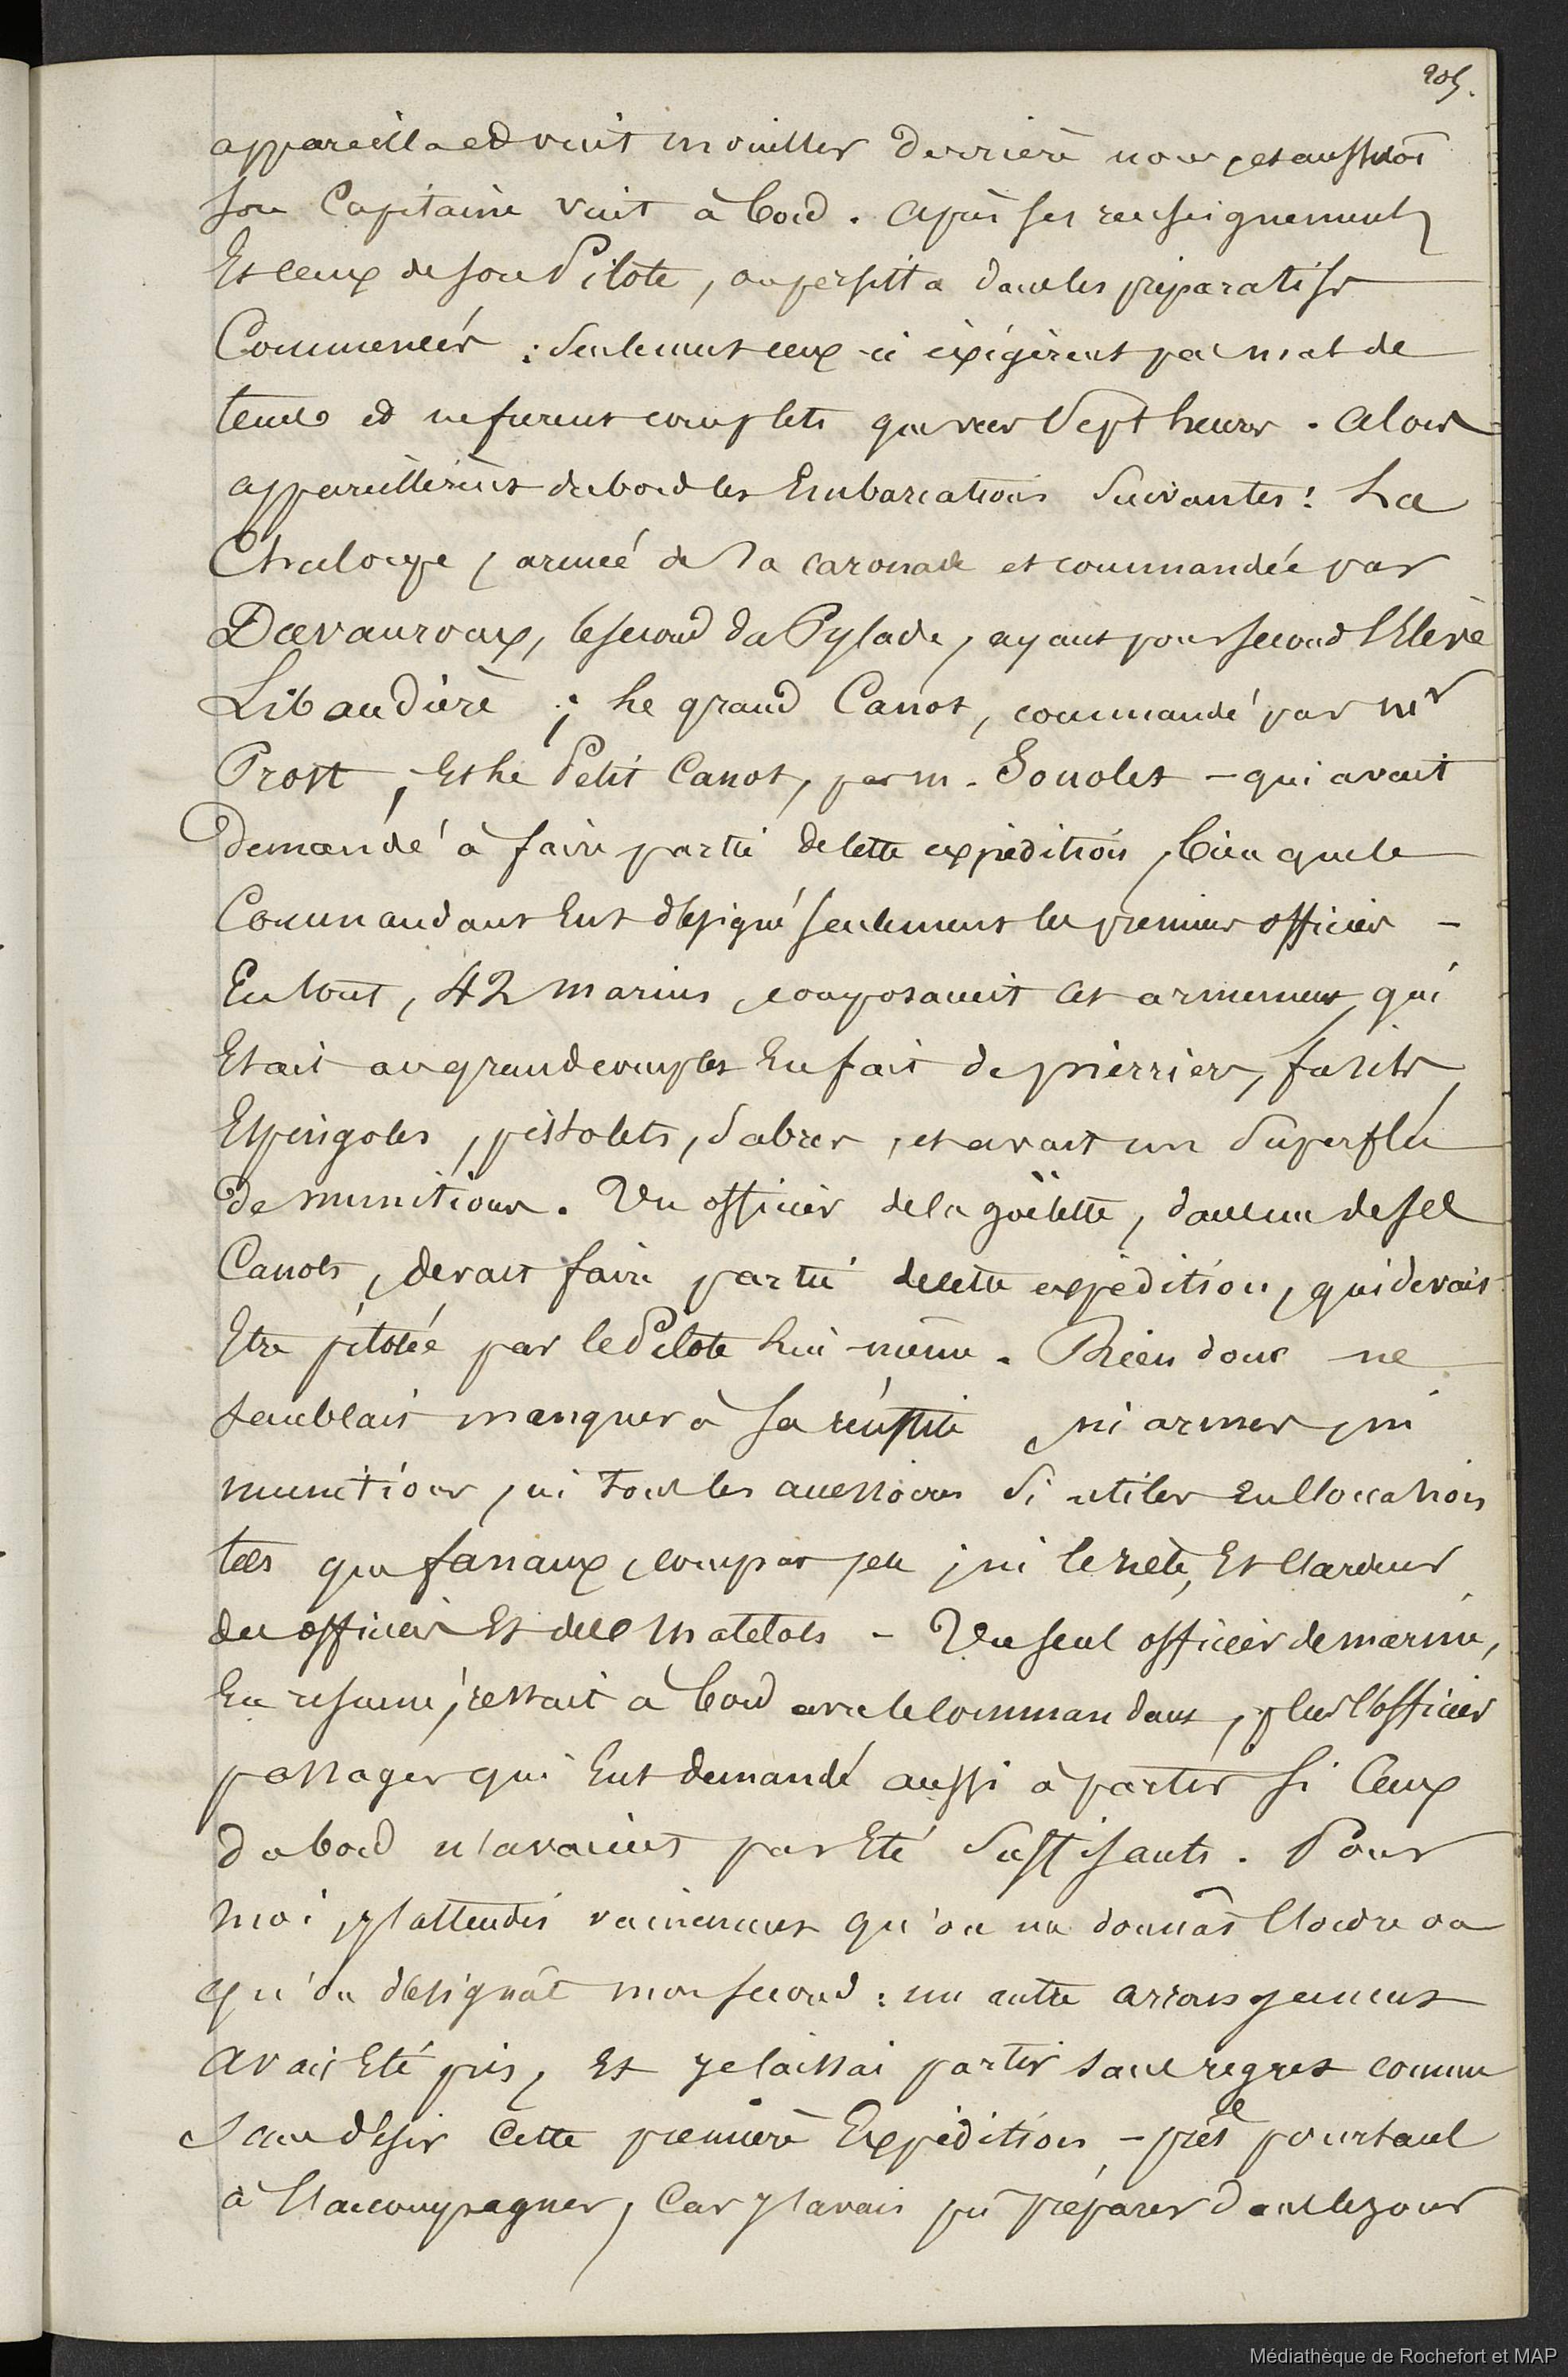 205.
appareilla et vint mouiller derrière nous, et aussitôt
son Capitaine vint à bord. Après ses renseignements
Et ceux de son Pilote, on persista dans les préparatifs
Commencés : Seulement ceux-ci éxigèrent pas mal de
tems et ne furent complets que vers Sept heures. Alors
appareillèrent du bord les Embarcations Suivantes : La
Chaloupe, armée de sa caronade et commandée par
Davauroux, le second du Pylade, ayant pour second l'Elève
Libaudière ; Le grand Canot, commandé par Mr
Prost ; Et Le Petit Canot, par M. Sonolet - qui avait
Demandé à faire partie de cette expédition, bien que le
Commandant Eut désigné seulement les premiers officiers -
En tout, 42 marins, composaient cet armement, qui
Etait au grand complet En fait de pierriers, fusils,
Espingoles, pistolets, Sabres, et avait un Superflu
de munitions. Un officier de la goëlette, dans un de ses
Canots, devait faire partie de cette expédition, qui devait
Etre pilotée par le Pilote Lui-même. Rien donc ne
semblait manquer à sa réussite, ni armes, ni
munitions, ni tous les accessoires Si utiles En l'occasion
tels que fanaux, compas, feu, ni le zèle, Et l'ardeur
des officiers Et des Matelots - Un seul officier de marine,
En résumé, restait à bord avec le Commandant, plus l'officier
passager qui Eut demandé aussi à partir Si Ceux
du bord n'avaient pas Eté Suffisants. Pour
moi, j'attendis vainement qu'on me donnât l'ordre ou
qu'on désignât mon second : un autre arrangement
avait Eté pris, Et je laissai partir sans regret comme
sans désir Cette première Expédition, - prêt pourtant
à l'accompagner, Car j'avais pû préparer dans le jour
Médiathèque de Rochefort et MAP